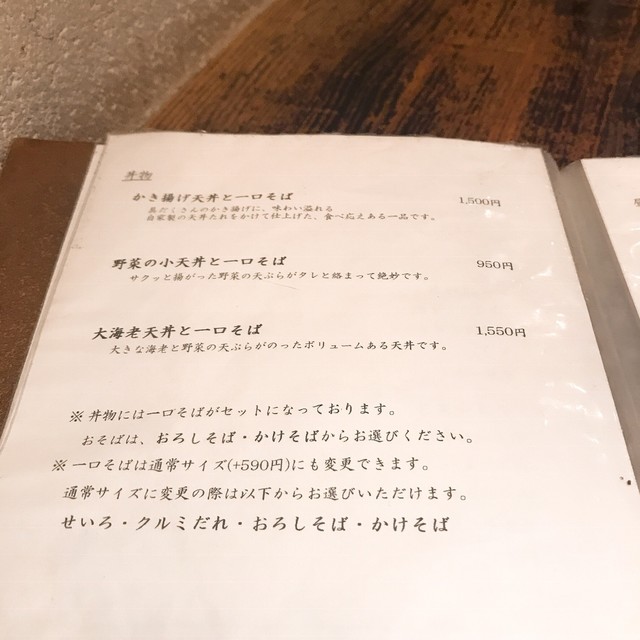 丼物
かき揚げ天丼と一口そば 1,500円
具だくさんのかき揚げに、味わい溢れる
自家製の天丼たれをかけて仕上げた、食べ応えある一品です。
野菜の小天丼と一口そば 950円
サクッと揚がった野菜の天ぷらがタレと絡まって絶妙です。
大海老天丼と一口そば 1,550円
大きな海老と野菜の天ぷらがのったボリュームある天丼です。
※ 丼物には一口そばがセットになっております。
おそばは、おろしそば・かけそばからお選びください。
※ 一口そばは通常サイズ(+590円)にも変更できます。
通常サイズに変更の際は以下からお選びいただけます。
せいろ・クルミだれ・おろしそば・かけそば